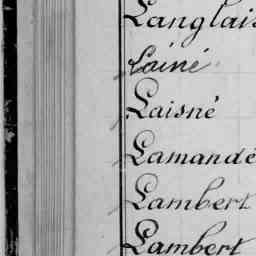 Langlais
Lainé
Laisné
Lamandé
Lambert
Lambert